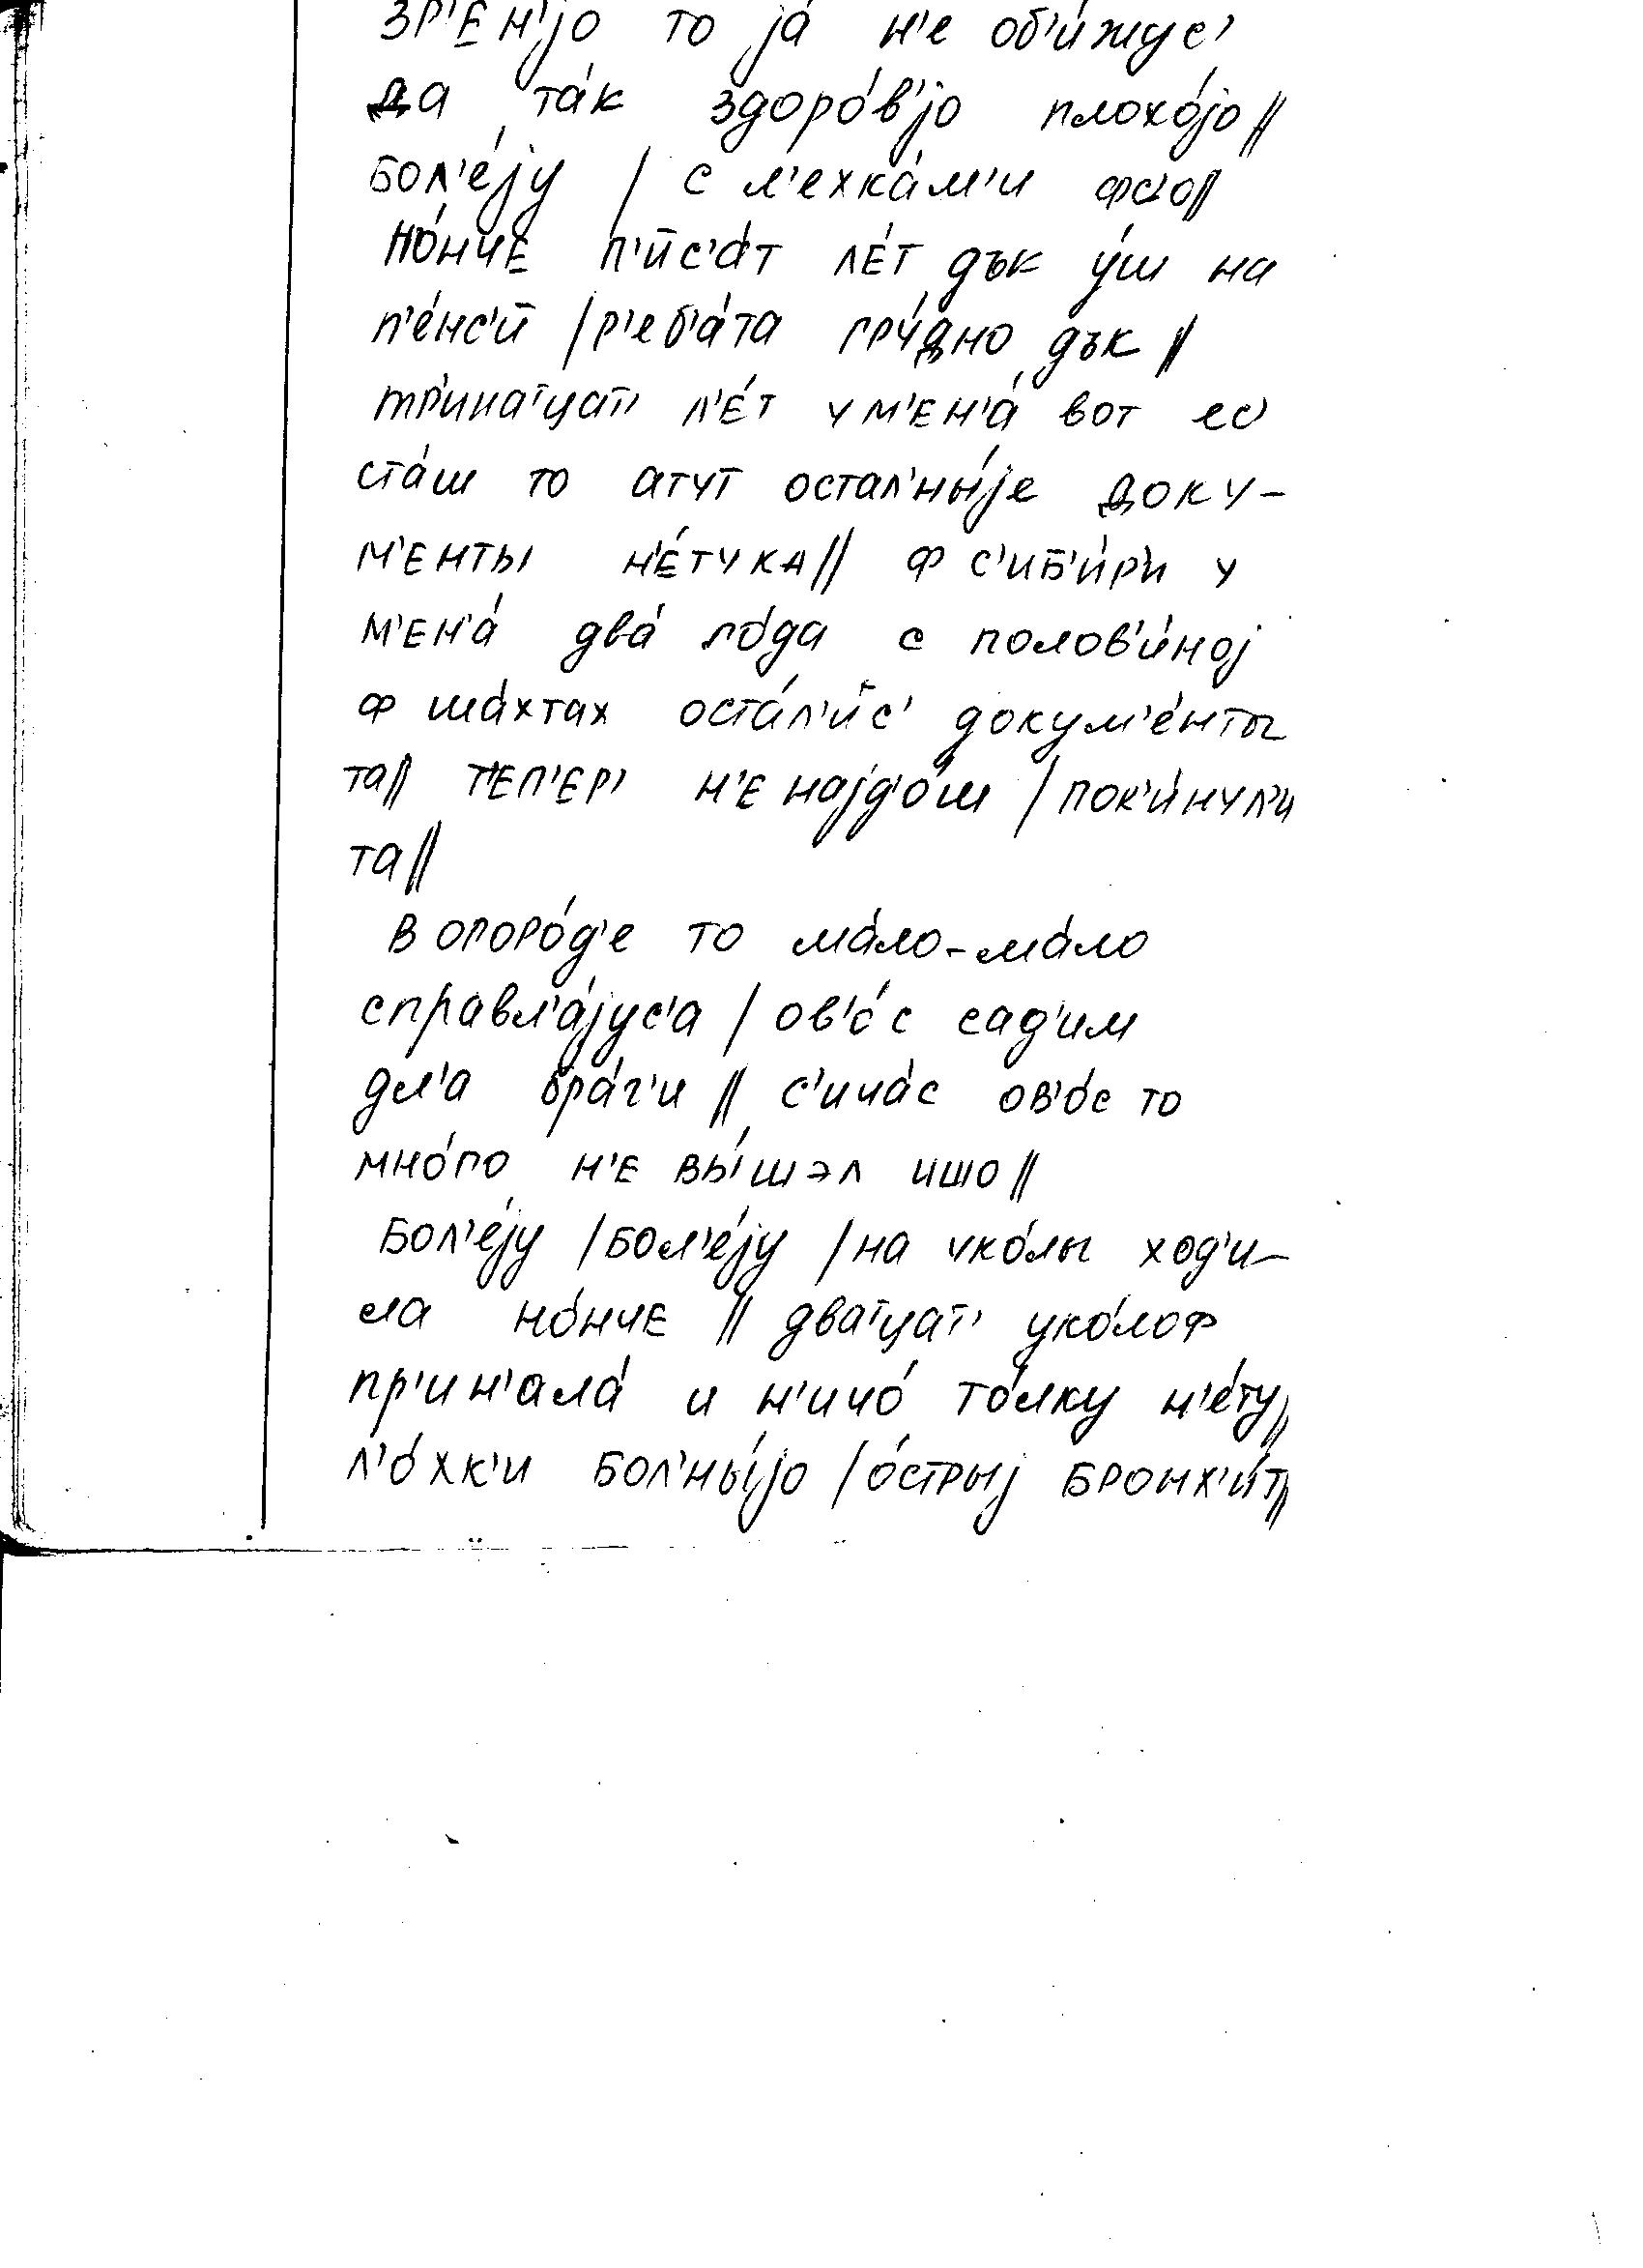 зр'ен'jо то jа́ н'е об'и́жус'
да та́к здоро́в'jо плохо́jо//
бол'е́jу / с л'ехка́м'и фс'о//
но́нче п'ис'а́т ле́т дък у́ш на
п'е́нс'й / р'еб'а́та гру́дно дък //
тр'ина́тцат' л'е́т у м'ен'а́ вот ес'
ста́ш то а тут остал'ны́jе доку-
м'енты н'е́тука// ф с'иб'и́р'и у
м'ен'а́ два́ го́да с полов'и́ноj
ф ша́хтах оста́л'ис' докум'е́нты
та// т'еп'ер' н'е наjд'о́ш / пок'и́нул'и
та//
в огоро́д'е то ма́ло-ма́ло
справл'а́jус'а / ов'о́с сад'им
дл'а бра́г'и // с'ича́с ов'о́с то
мно́го н'е вы́шэл ишо //
бол'е́jу / бол'е́jу / на уко́лы ход'и-
ла но́нче // два́тцат' уко́лоф
пр'ин'ала́ и н'ичо́ то́лку н'е́ту//
л'о́хк'и бол'ны́jо / о́стрыj бронх'и́т//